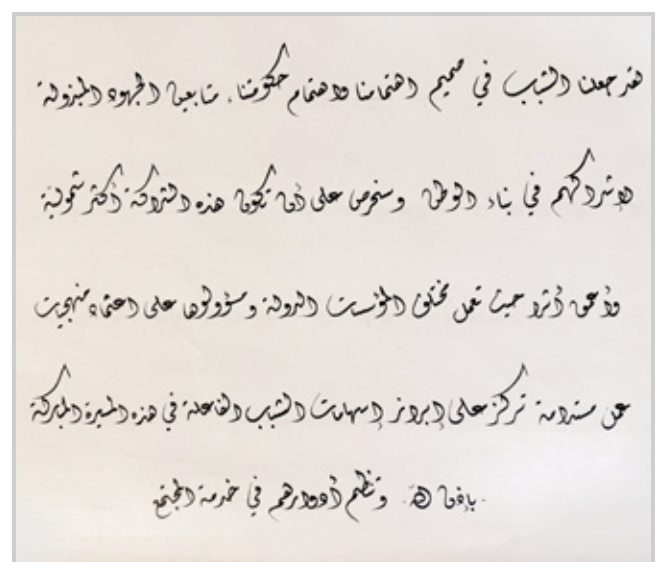 لقد جعلنا الشباب في صميم اهتمامنا واهتمام حكومتنا. متابعين الجهود المبذولة
لإشراكهم في بناء الوطن وسنحرص على أن تكون هذه الشراكة أكثر شمولية
وأعمق أثرا حيث تعمل مختلف المؤسسات الدولة ومسؤولوها على اعتماد منهجيات
عمل مستدامة تركز على إبراز إسهامات الشباب الفاعلة في هذه المسيرة المباركة
بإذن الله. وتنظم أدوارهم في خدمة المجتمع